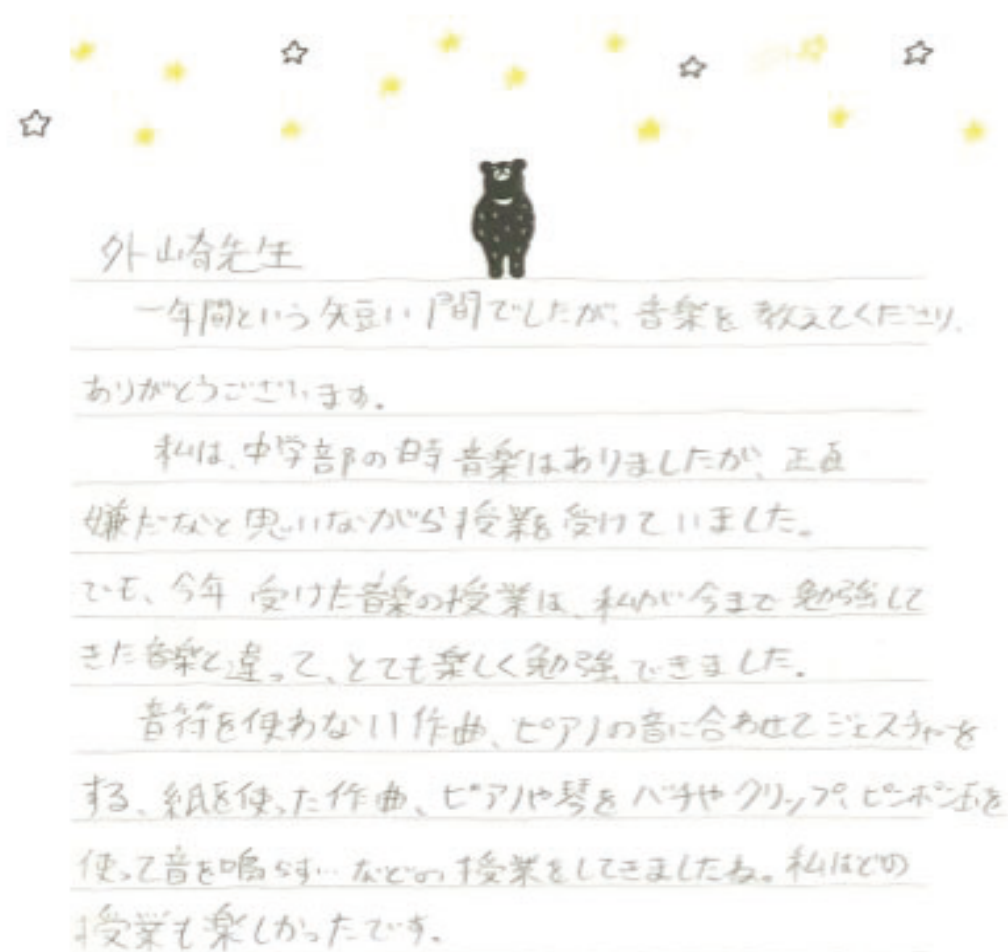 外山奇先生
一年間という短い間でしたが、音楽を教えてくださり、
ありがとうございます。
私は、中学部の時音楽はありましたが、正直
嫌だなと思いながら授業を受けていました。
でも、今年受けた音楽の授業は、私が今まで勉強して
きた音楽と違って、とても楽しく勉強できました。
音符を使わない作曲、ピアノの音に合わせてジェスチャーを
する、紙を使った作曲、ピアノや琴をバチやクリップ、ピンポン玉を
使って音を鳴らす…などの授業をしてきましたね。私はどの
授業も楽しかったです。